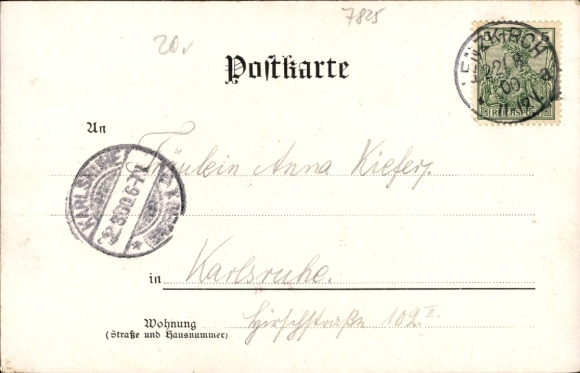 7825
20
Postkarte
LENZKIRCH
22/8
00
REICHSPOST
An
Fräulein Anna Kiefer,
KARLSRUHE
22.8.00.6-7N.
in
Karlsruhe.
Wohnung
(Straße und Hausnummer)
Hirschstraße 102 II